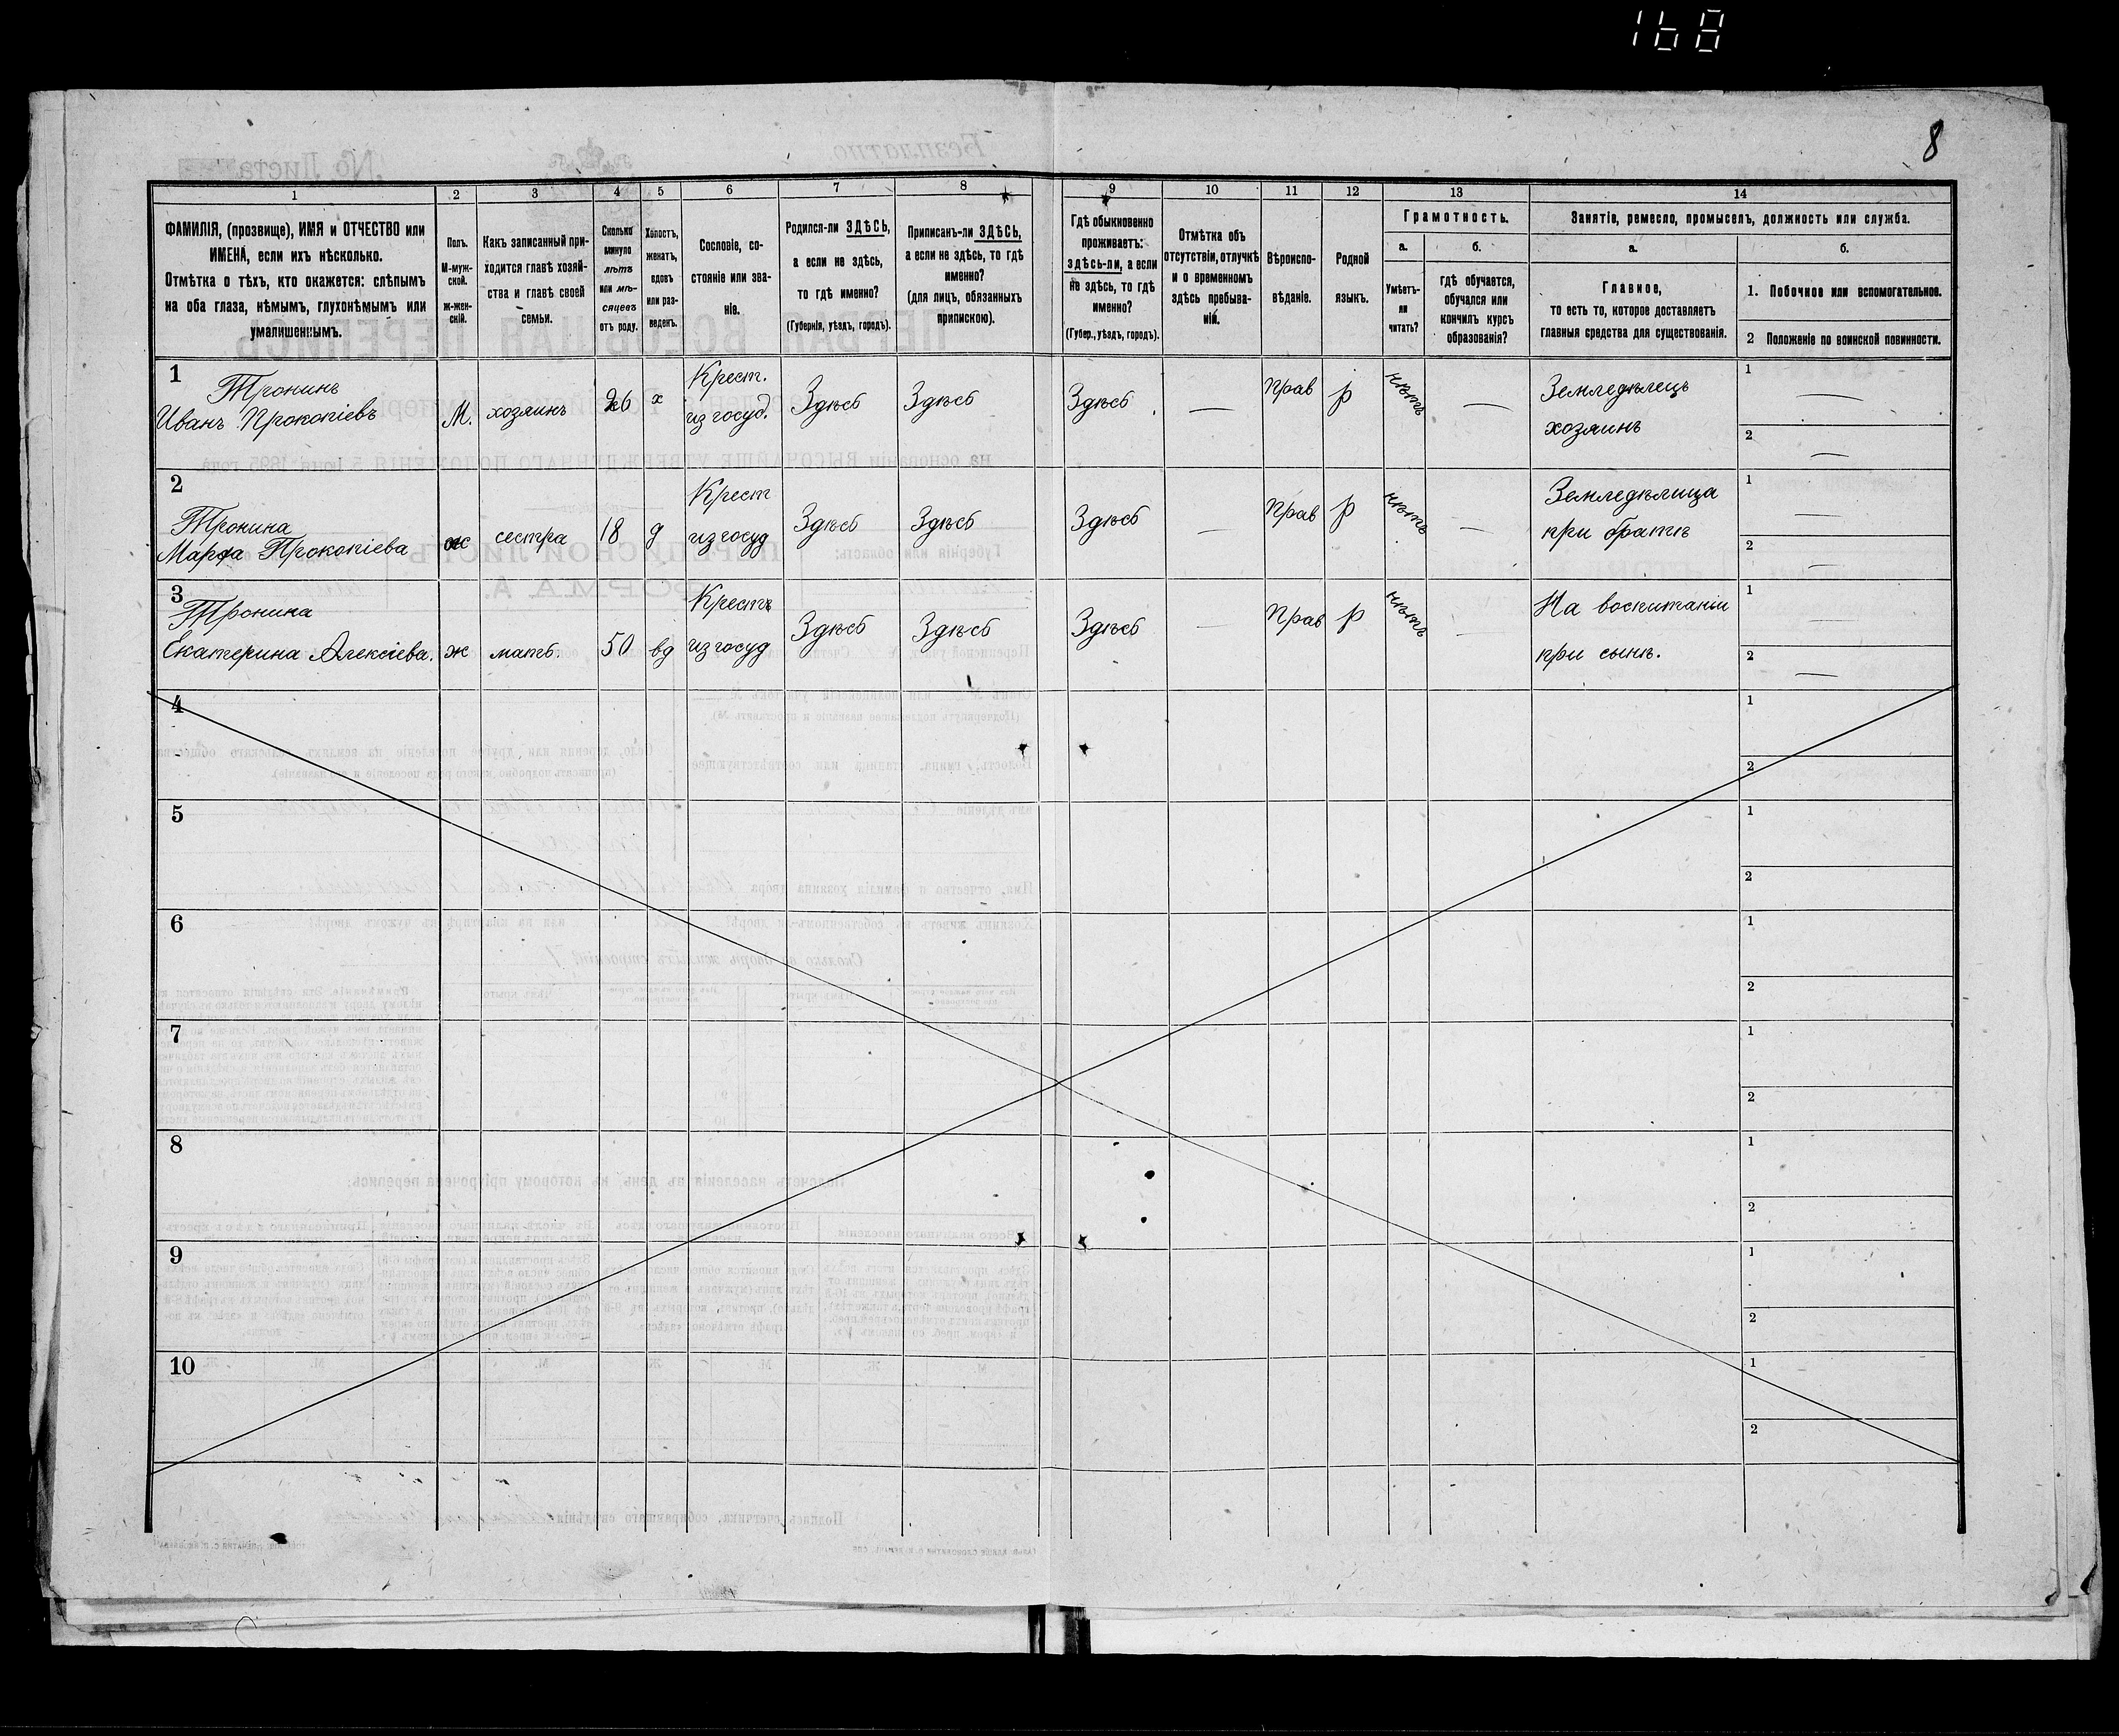 168
8
1 2 3 4 5 6 7 8 9 10 11 12 13 14
ФАМИЛІЯ, (прозвище), ИМЯ и ОТЧЕСТВО или
ИМЕНА, если ихъ нѣсколько.
Отмѣтка о тѣхъ, кто окажется: слѣпымъ
на оба глаза, нѣмымъ, глухонѣмымъ или
умалишеннымъ.
Полъ.
М-муж-
ской.
ж-жен-
скій.
Какъ записанный при-
ходится главѣ хозяй-
ства и главѣ своей
семьи.
Сколько
минуло
лѣтъ
или мѣ-
сяцевъ
отъ роду.
Холостъ,
женатъ,
вдовъ
или раз-
веденъ.
Сословіе, со-
стояніе или зва-
ніе.
Родился-ли ЗДѢСЬ,
а если не здѣсь,
то гдѣ именно?
(Губернія, уѣздъ, городъ).
Приписанъ-ли ЗДѢСЬ,
а если не здѣсь, то гдѣ
именно?
(для лицъ, обязанныхъ
припискою).
Гдѣ обыкновенно
проживаетъ:
здѣсь-ли, а если
не здѣсь, то гдѣ
именно?
(Губер., уѣздъ, городъ).
Отмѣтка объ
отсутствіи, отлучкѣ
и о временномъ
здѣсь пребыва-
ніи.
Вѣроиспо-
вѣданіе.
Родной
языкъ.
Грамотность.
а.
Умѣетъ-
ли
читать?
б.
гдѣ обучается,
обучался или
кончилъ курсъ
образованія?
Занятіе, ремесло, промыселъ, должность или служба.
а.
Главное,
то есть то, которое доставляетъ
главныя средства для существованія.
б.
1. Побочное или вспомогательное.
2 Положеніе по воинской повинности.
1
Тронинъ
Иванъ Прокопіевъ
М.
хозяинъ
26
х
Крест.
из госуд.
Здѣсь
Здѣсь
Здѣсь
—
Прав
р
нѣтъ
—
Земледѣлецъ
хозяинъ
1 —
2 —
2
Тронина
Марфа Прокопіева
ж
сестра
18
д
Крест
из госуд
Здѣсь
Здѣсь
Здѣсь
—
Прав
р
нѣтъ
—
Земледѣлица
при братѣ
1 —
2 —
3
Тронина
Екатерина Алексіева.
ж
мать.
50
вд
Крестъ
из госуд
Здѣсь
Здѣсь
Здѣсь
—
Прав
р
нѣтъ
—
На воспитаніи
при сынѣ.
1 —
2 —
4
1
2
5
1
2
6
1
2
7
1
2
8
1
2
9
1
2
10
1
2